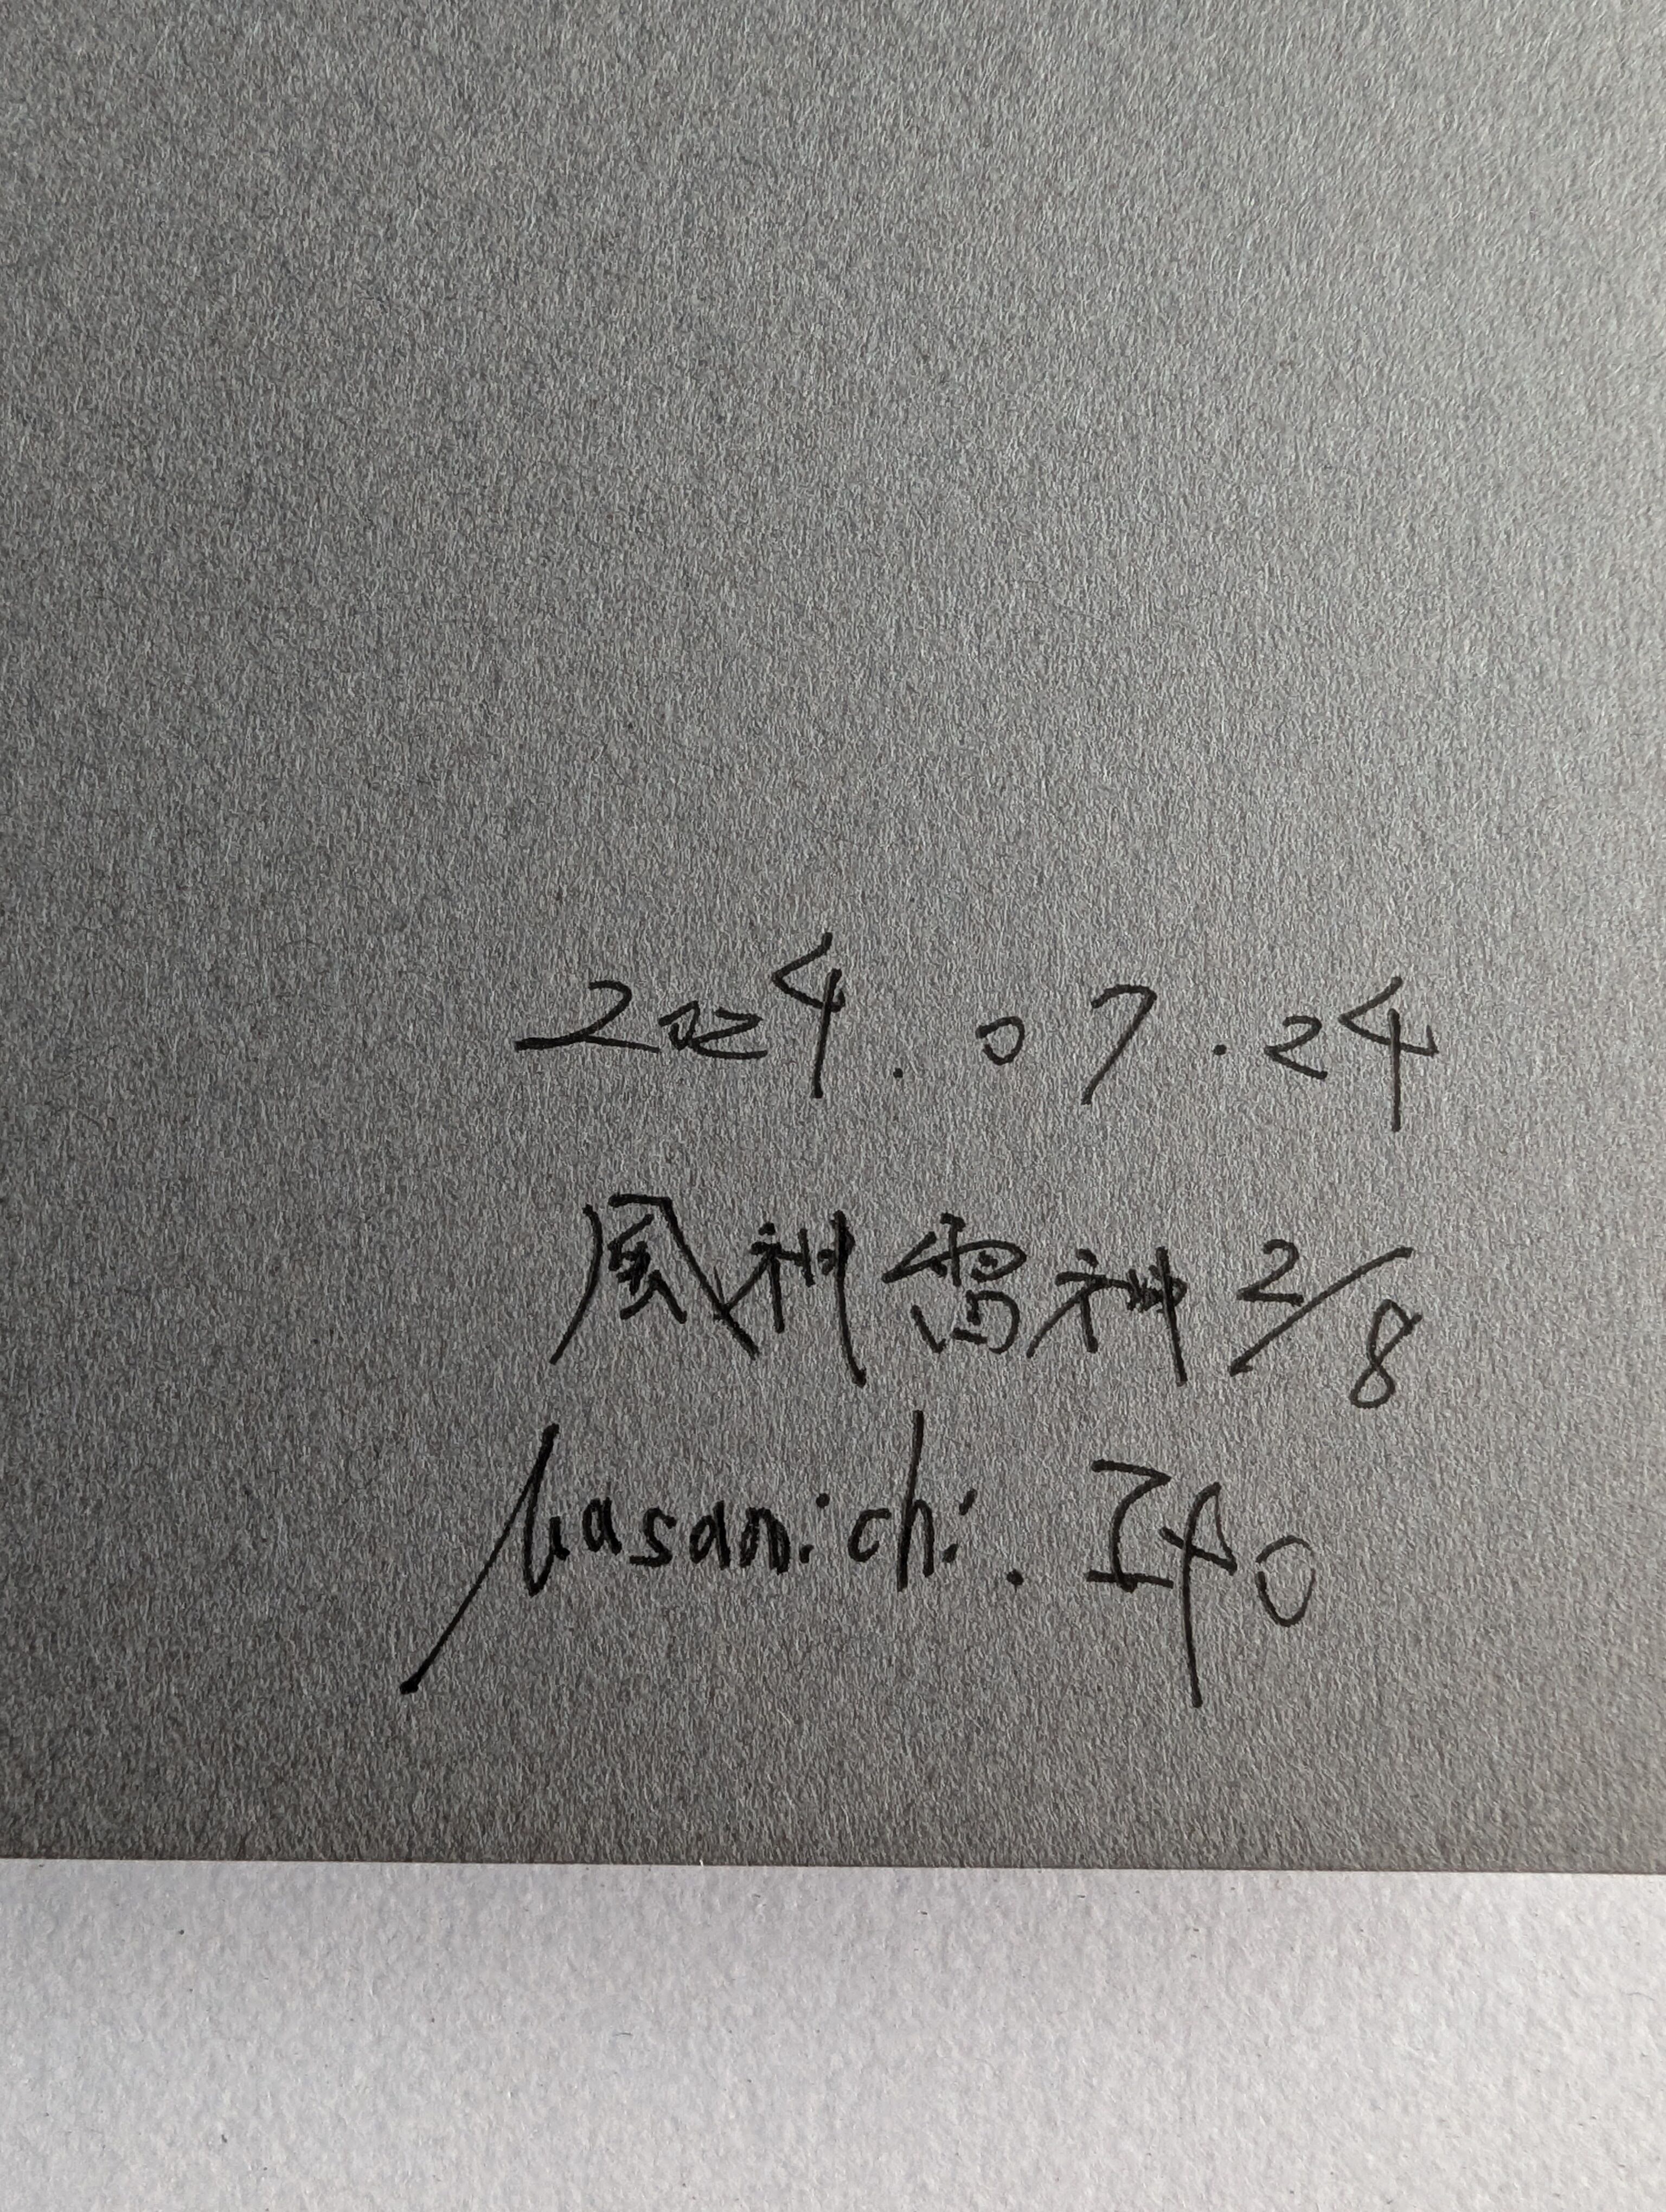 2024.07.24
風神雷神 2/8
Masamichi. Ito